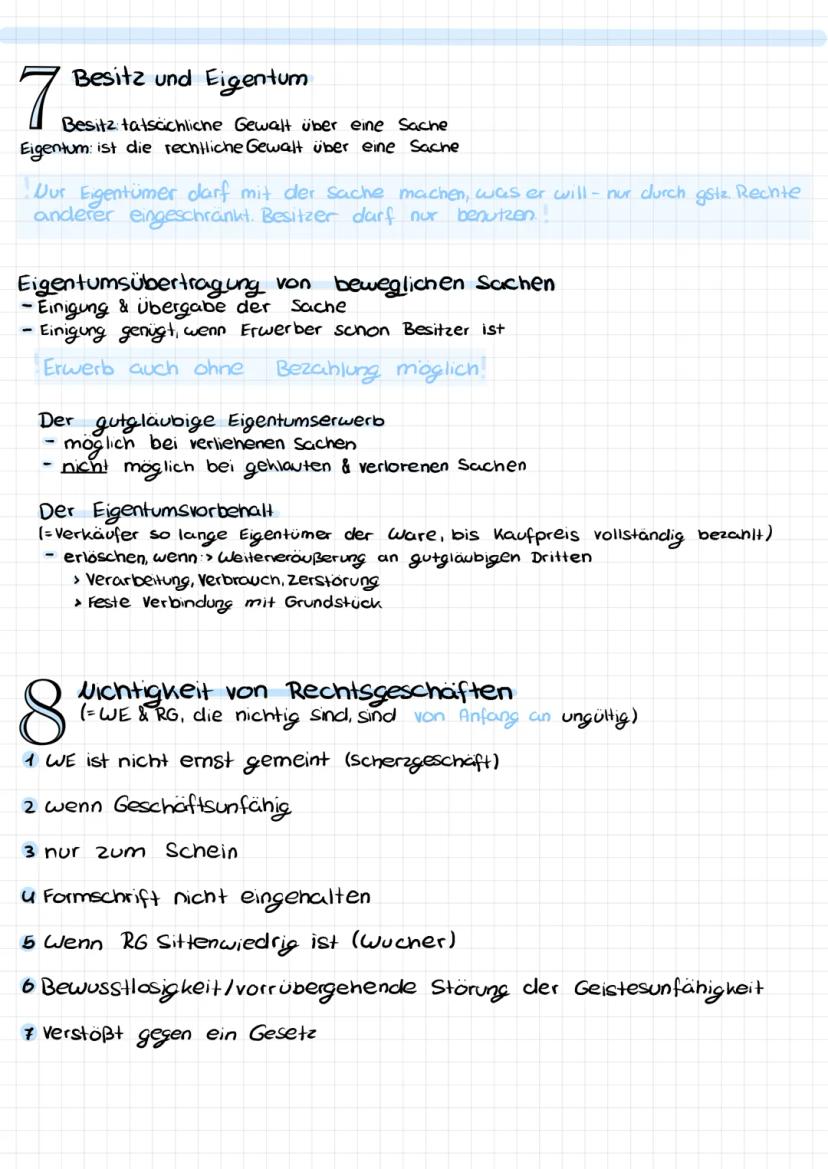 7 Besitz und Eigentum
Besitz: tatsächliche Gewalt über eine Sache
Eigentum: ist die rechtliche Gewalt über eine Sache
! Nur Eigentümer darf mit der Sache machen, was er will - nur durch gstz. Rechte
anderer eingeschränkt. Besitzer darf nur benutzen !
Eigentumsübertragung von beweglichen Sachen
- Einigung & Übergabe der Sache
- Einigung genügt, wenn Erwerber schon Besitzer ist
! Erwerb auch ohne Bezahlung möglich!
Der gutgläubige Eigentumserwerb
- möglich bei verliehenen Sachen
- nicht möglich bei geklauten & verlorenen Sachen
Der Eigentumsvorbehalt
(=Verkäufer so lange Eigentümer der Ware, bis Kaufpreis vollständig bezahlt)
- erlöschen, wenn: > Weiterveräußerung an gutgläubigen Dritten
> Verarbeitung, Verbrauch, Zerstörung
> Feste Verbindung mit Grundstück
8 Nichtigkeit von Rechtsgeschäften
(= WE & RG, die nichtig sind, sind von Anfang an ungültig)
1 WE ist nicht ernst gemeint (Scherzgeschäft)
2 wenn Geschäftsunfähig
3 nur zum Schein
4 Formschrift nicht eingehalten
5 Wenn RG Sittenwiedrig ist (Wucher)
6 Bewusstlosigkeit/vorrübergehende Störung der Geistesunfähigkeit
7 Verstößt gegen ein Gesetz